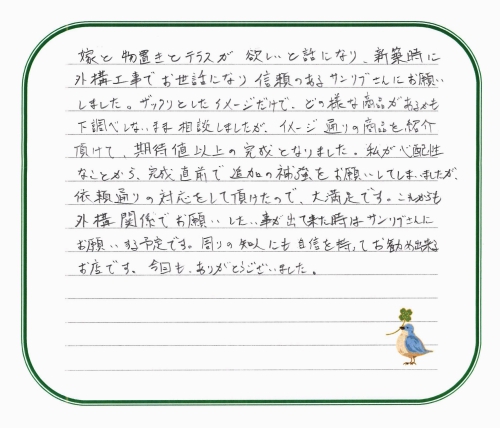 嫁と物置きとテラスが欲しいと話になり、新築時に
外構工事でお世話になり信頼のあるサンリブさんにお願い
しました。ザックリとしたイメージだけで、どの様な商品があるかも
下調べしないまま相談しましたが、イメージ通りの商品を紹介
頂けて、期待値以上の完成となりました。私が心配性
なことから、完成直前で追加の補強をお願いしてしまいましたが、
依頼通りの対応をして頂けたので、大満足です。これからも
外構関係でお願いしたい事が出て来た時はサンリブさんに
お願いする予定です。周りの知人にも自信を持ってお勧め出来る
お店です。今回も、ありがとうございました。